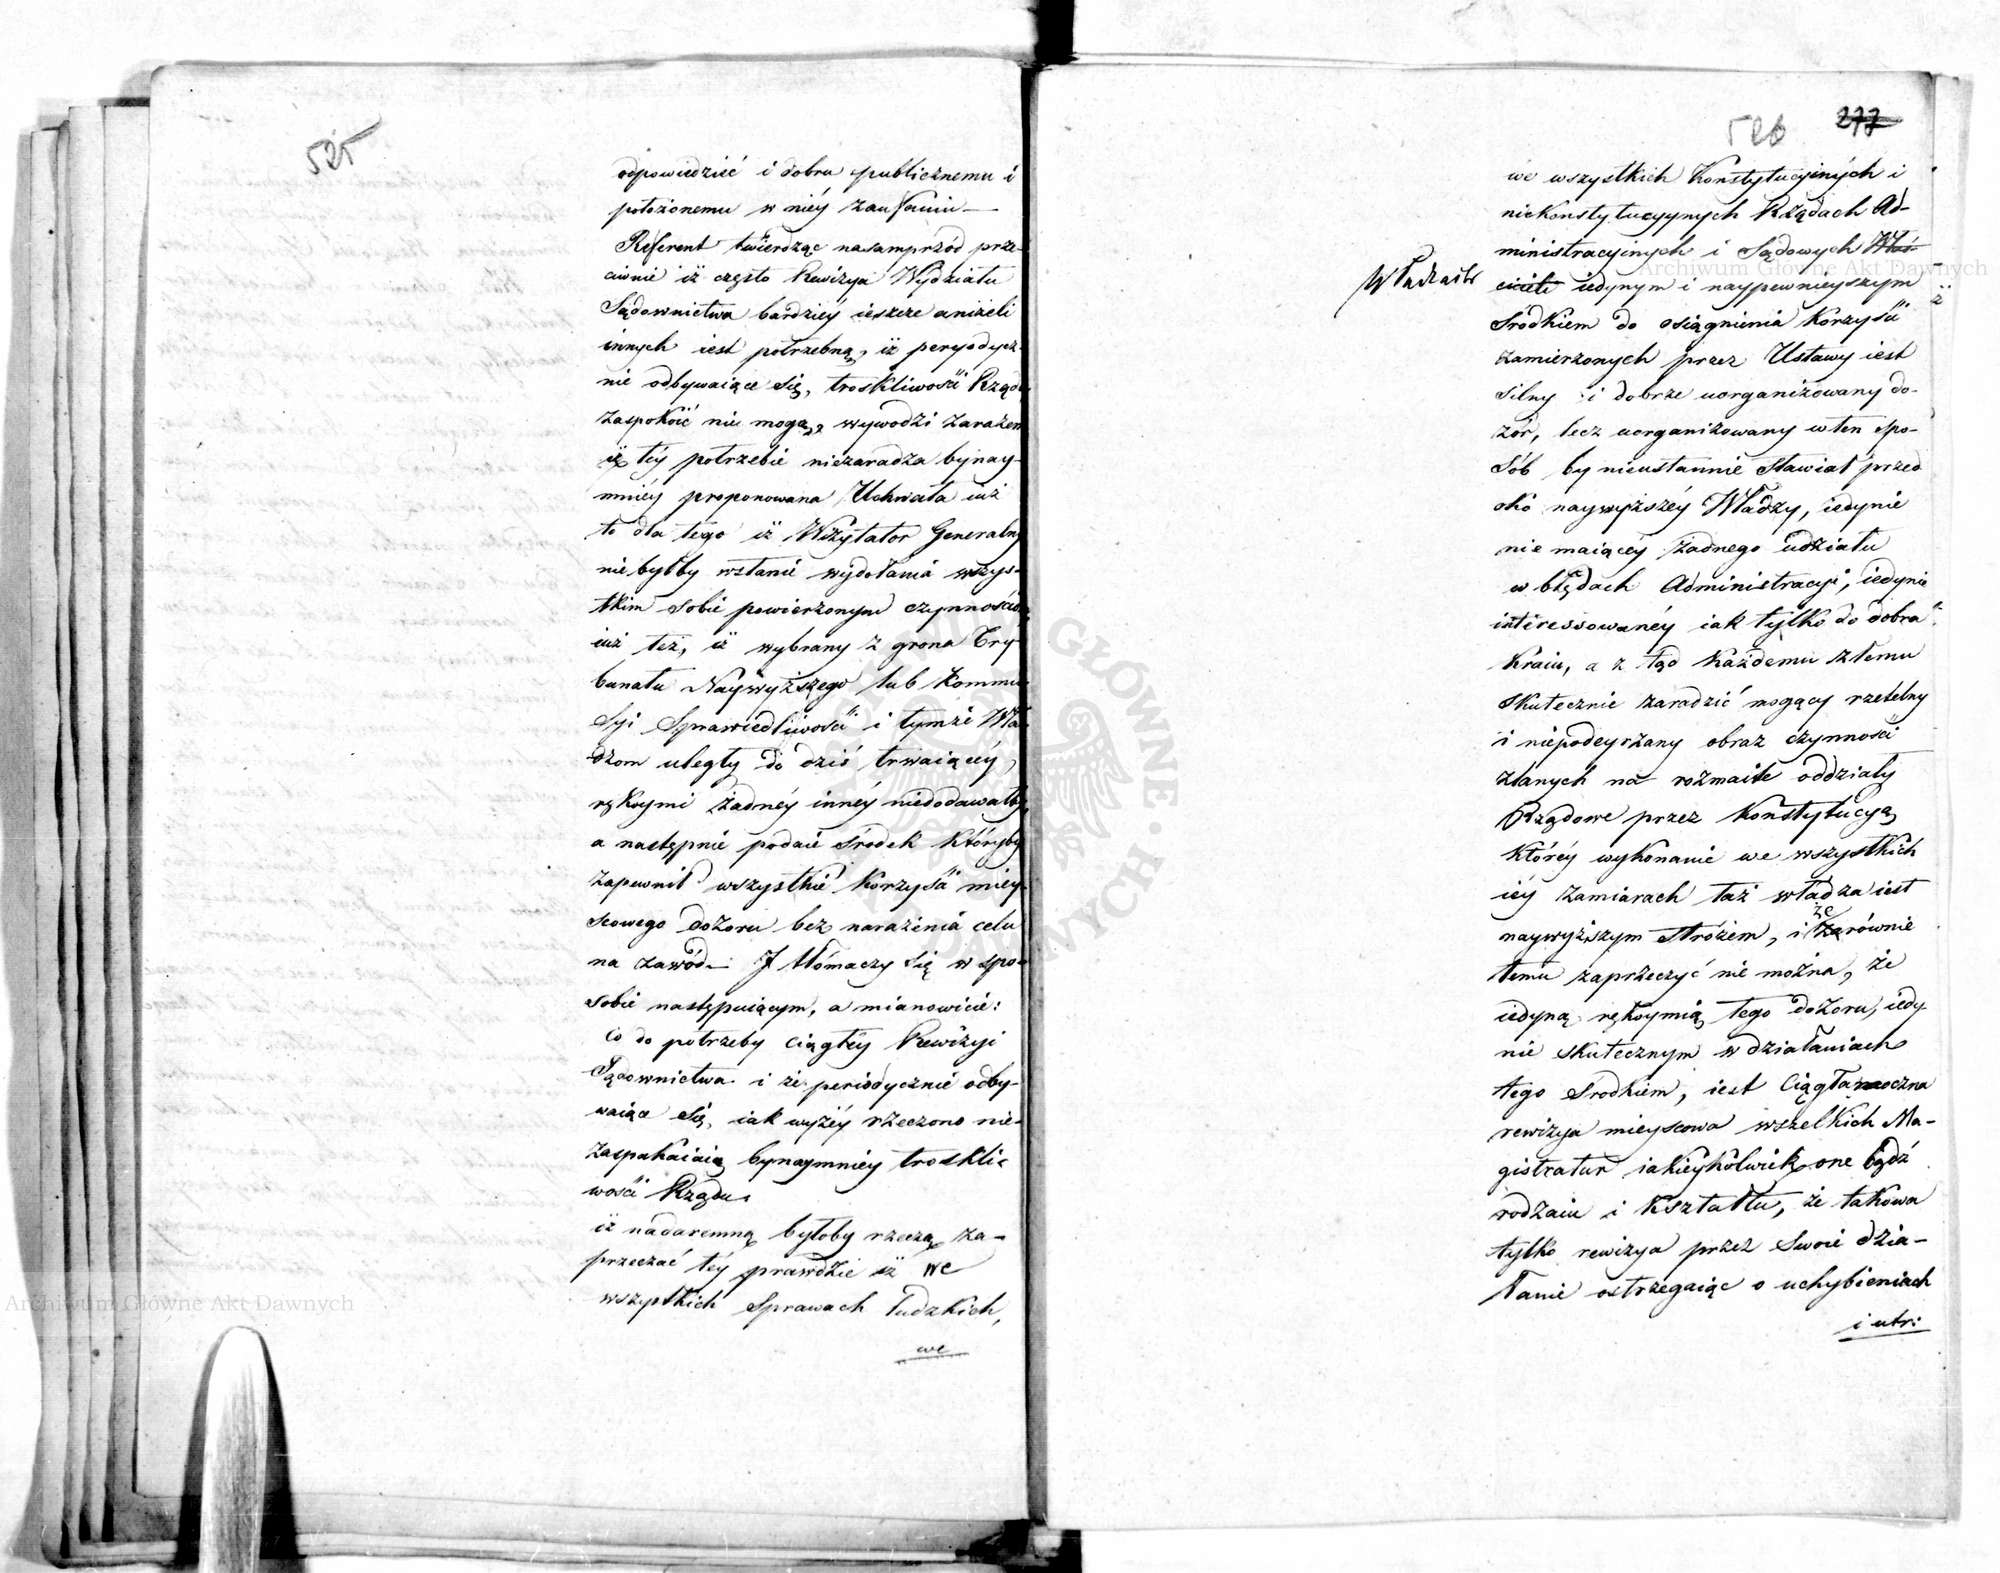 525
odpowiedzieć i dobru publicznemu i
położonemu w niéy zaufaniu —
Referent twierdząc nasamprzód prze-
ciwnie iż często Rewizya Wydziału
Sądownictwa bardziéy ieszcze aniżeli
innych iest potrzebną, iż peryodycz-
nie odbywaiące się, troskliwości Rządu
zaspokoić nie mogą, wywodzi zarazem
iż téy potrzebie niezaradza bynay-
mniéy proponowana Uchwała iuż
to dla tego iż Wizytator Generalny
nie byłby wstanie wydołania wszys-
tkim sobie powierzonym czynnościom
iuż też, iż wybrany z grona Try-
bunału Naywyższego lub Kommis-
syi Sprawiedliwości i tymże Wła-
dzom uległy do dziś trwaiącéy
rękoymi żadnéy innéy niedodawałby,
a następnie podaie środek któryby
zapewnił wszystkie korzyści miey-
scowego dozoru bez narażenia celu
na zawód. — I tłómaczy się w spo-
sobie następuiącym, a mianowicie:
Co do potrzeby ciągłéy Rewizyi
Sądownictwa i że periodycznie odby-
waiące się, iak wyżéy rzeczono nie-
zaspakaiaią bynaymniéy troskli-
wości Rządu.
iż nadaremną byłoby rzeczą za-
przeczać téy prawdzie iż we
wszystkich Sprawach ludzkich,
we
526 277
we wszystkich Konstytucyinych i
niekonstytucyynych Rządach Ad-
ministracyinych i Sądowych Wła-
ściete iedynym i naypewnieyszym
Władzach
środkiem do osiągnienia korzyści
zamierzonych przez Ustawy iest
silny i dobrze uorganizowany do-
zór, lecz uorganizowany w ten spo-
sób by nieustannie stawiał przed
oko naywyższéy Władzy, iedynie
nie maiącéy żadnego udziału
w błędach Administracyi, iedynie
interessowanéy iak tylko do dobra
Kraiu, a z tąd każdemu złemu
skutecznie zaradzić mogący rzetelny
i niepodeyrzany obraz czynności
zlanych na rozmaite oddziały
Rządowe przez Konstytucyą
któréy wykonanie we wszystkich
iéy zamiarach taż władza iest
naywyższym stróżem, i że zarównie
temu zaprzeczyć nie można, że
iedyną rękoymią tego dozoru, iedy-
nie skutecznym w działaniach
tego środkiem, iest ciągła naoczna
rewizya mieyscowa wszelkich Ma-
gistratur iakieykolwiek one bądź
rodzaiu i kształtu, że takowa
tylko rewizya przez swoie dzia-
łanie ostrzegaiąc o uchybieniach
i utr:
Archiwum Główne Akt Dawnych
Archiwum Główne Akt Dawnych